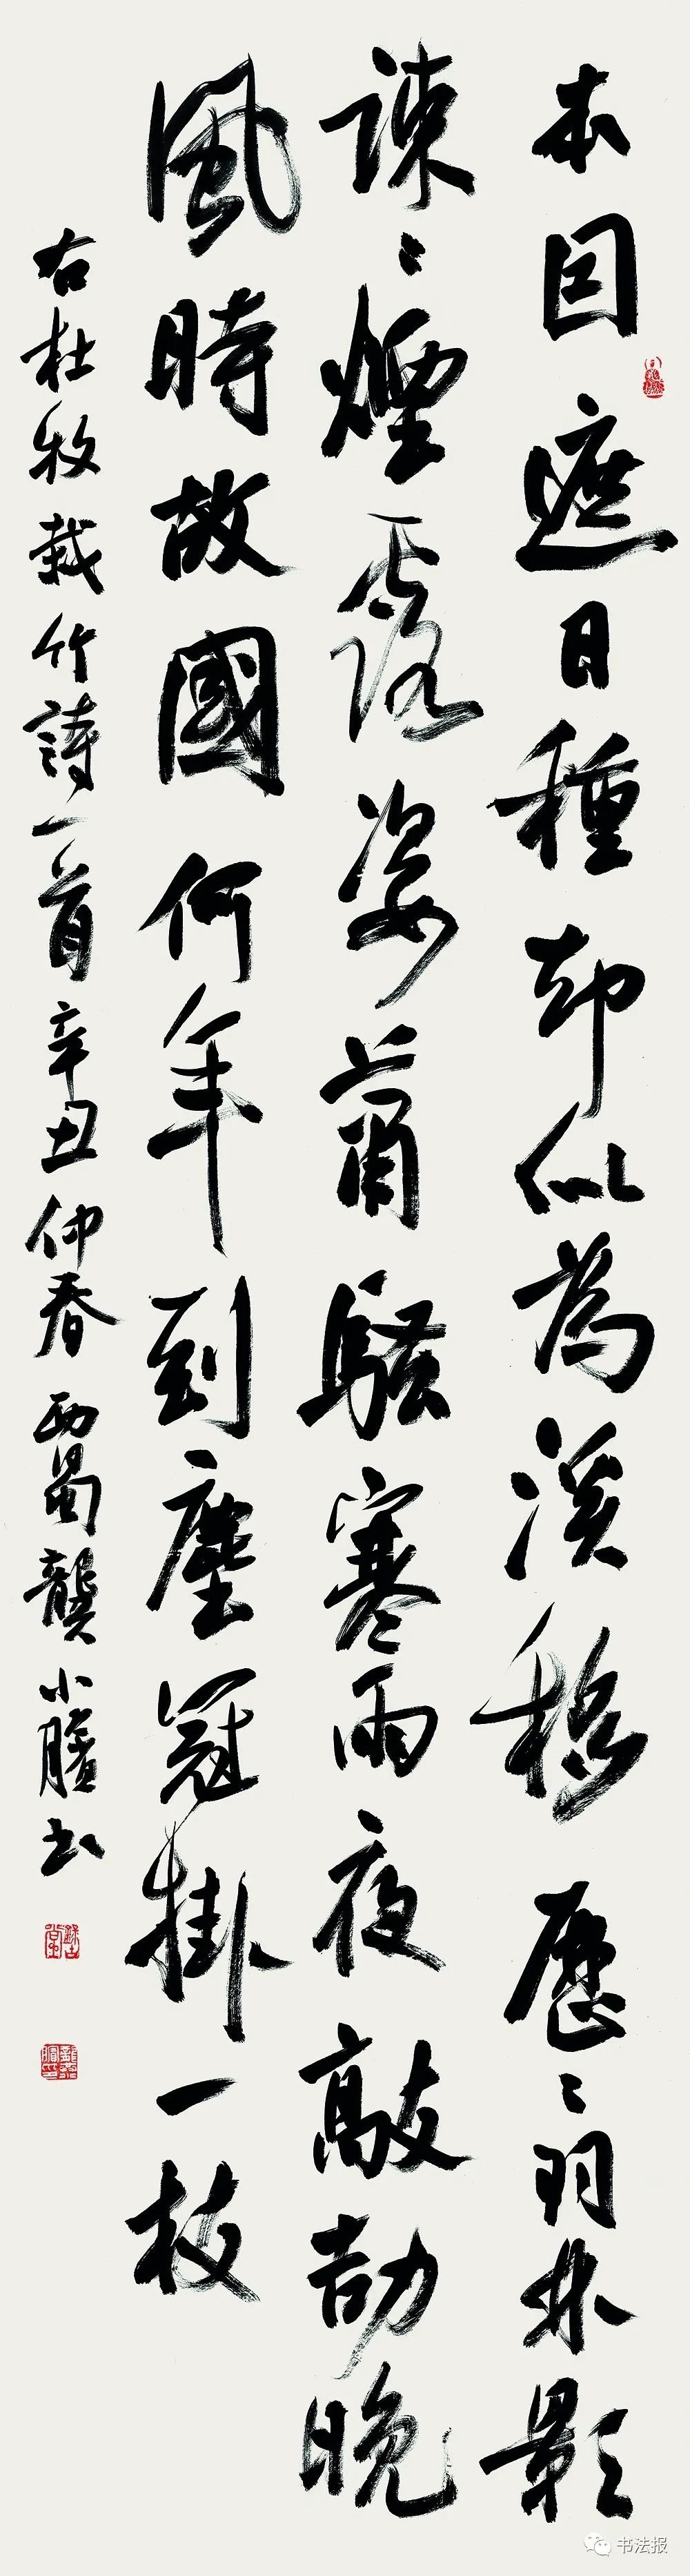 本因遮日種却似為溪移歷〻羽林影
疎〻煙露姿蕭騷寒雨夜敲劼晚
風時故國何年到塵冠掛一枝
右杜牧栽竹詩一首辛丑仲春西蜀龔小臏书
书法报